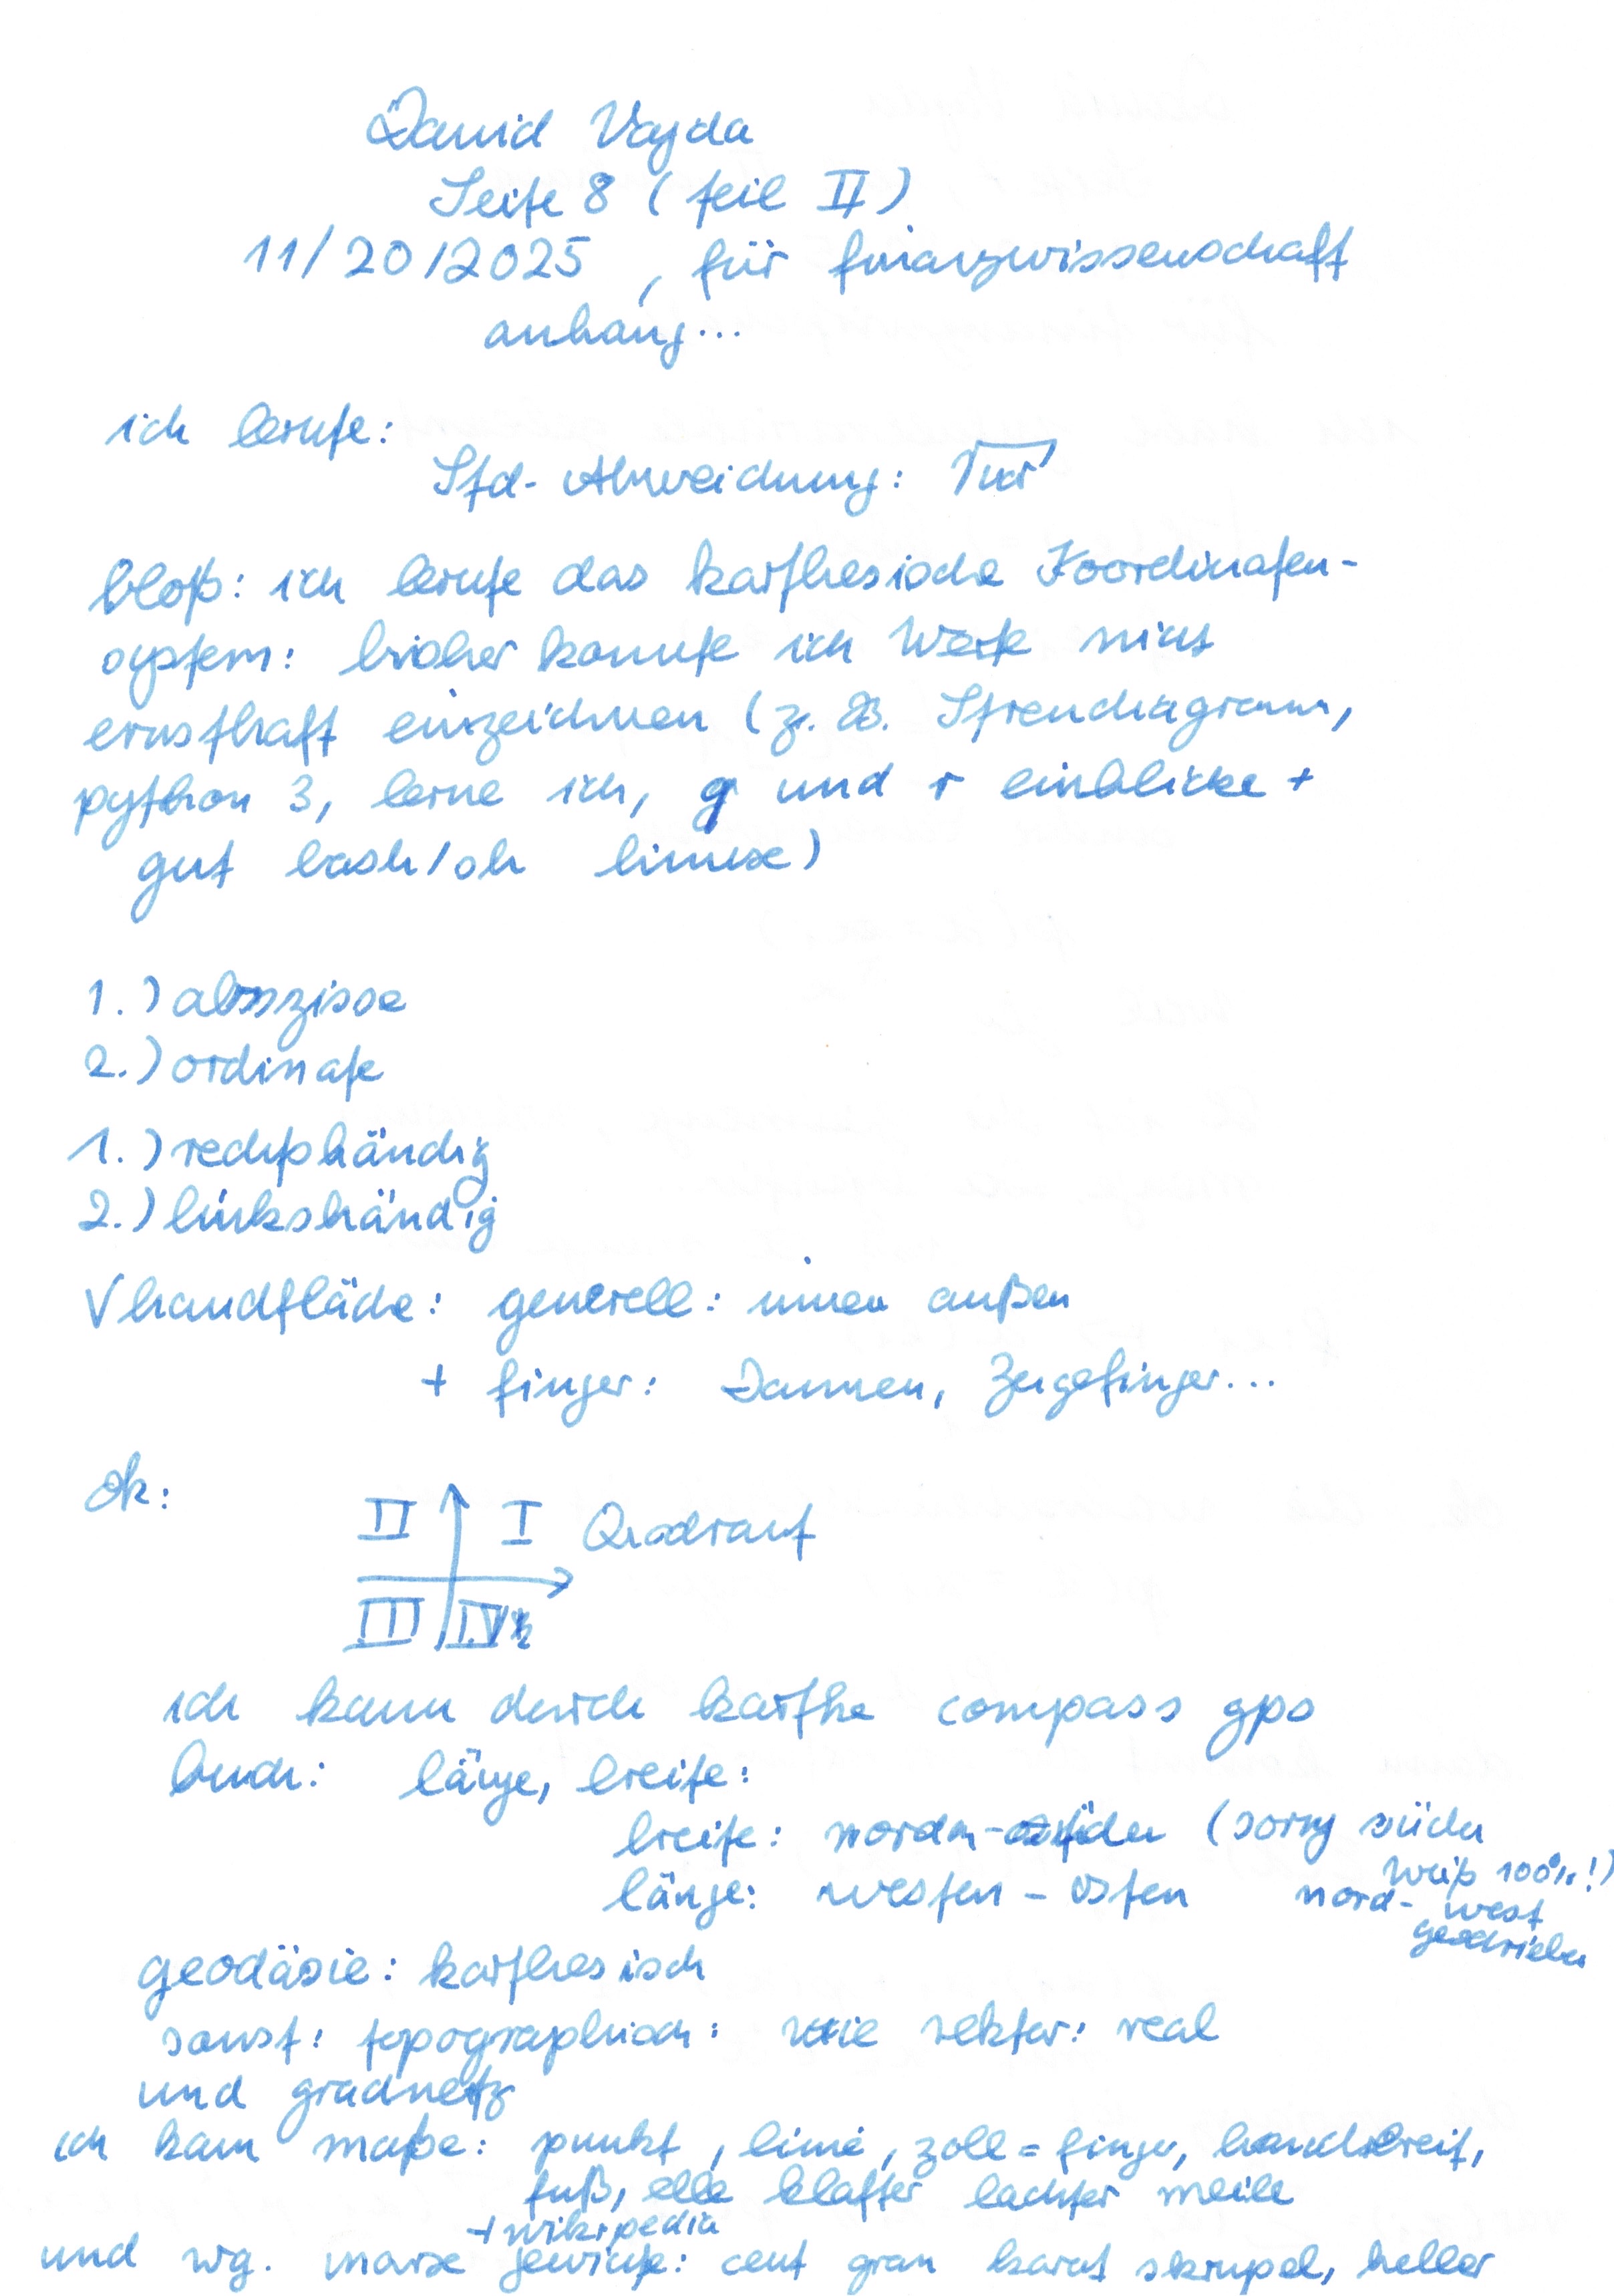 David Vajda
Seite 8 (teil II)
11/20/2025, für finanzwissenschaft
anhang...
ich lernte:
Std-Abweichung: √var
bloß: ich lernte das karthesische Koordinaten-
system: bisher konnte ich Werte nicht
ernsthaft einzeichnen (z.B. Streudiagramm,
python 3, lerne ich, q und r einblicke +
gut bash/sh linux)
1.) abszisse
2.) ordinate
1.) rechtshändig
2.) linkshändig
√handfläche: generell: innen außen
+ finger: Daumen, Zeigefinger...
ok:
II I Quadrant
III IV
ich kann durch karthe compass gps
buch: länge, breite:
breite: norden-süden (sorry süden
weiß 100%!)
länge: westen - osten nord- west
geschrieben
geodäsie: karthesisch
sonst: topographisch: wie vektor: real
und gradnetz
ich kann maße: punkt, linie, zoll = finger, handbreit,
fuß, elle klafter lachter meile
+ wikipedia
und wg. marx gewichte: cent gran karat skrupel, heller